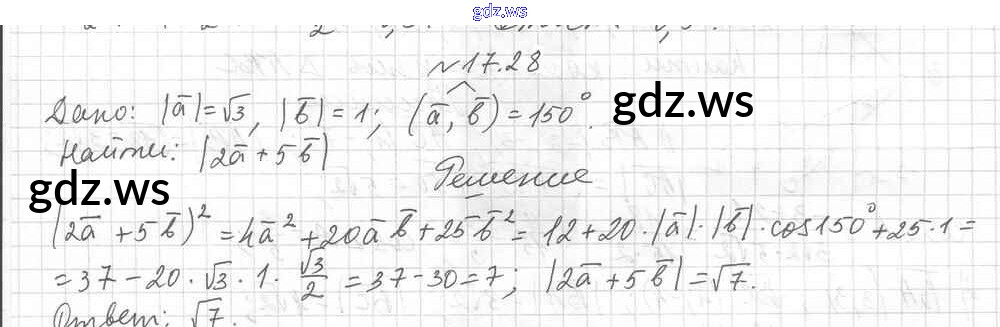 gdz.ws
№17.28
Дано: |a̅|=√3, |b̅|=1; (a̅, b̅)=150°. gdz.ws
Найти: |2a̅+5b̅|
gdz.ws Решение
(2a̅+5b̅)²=4a̅²+20a̅b̅+25b̅²=12+20·|a̅|·|b̅|·cos150°+25·1=
=37-20·√3·1·√3/2=37-30=7; |2a̅+5b̅|=√7.
Ответ: √7.